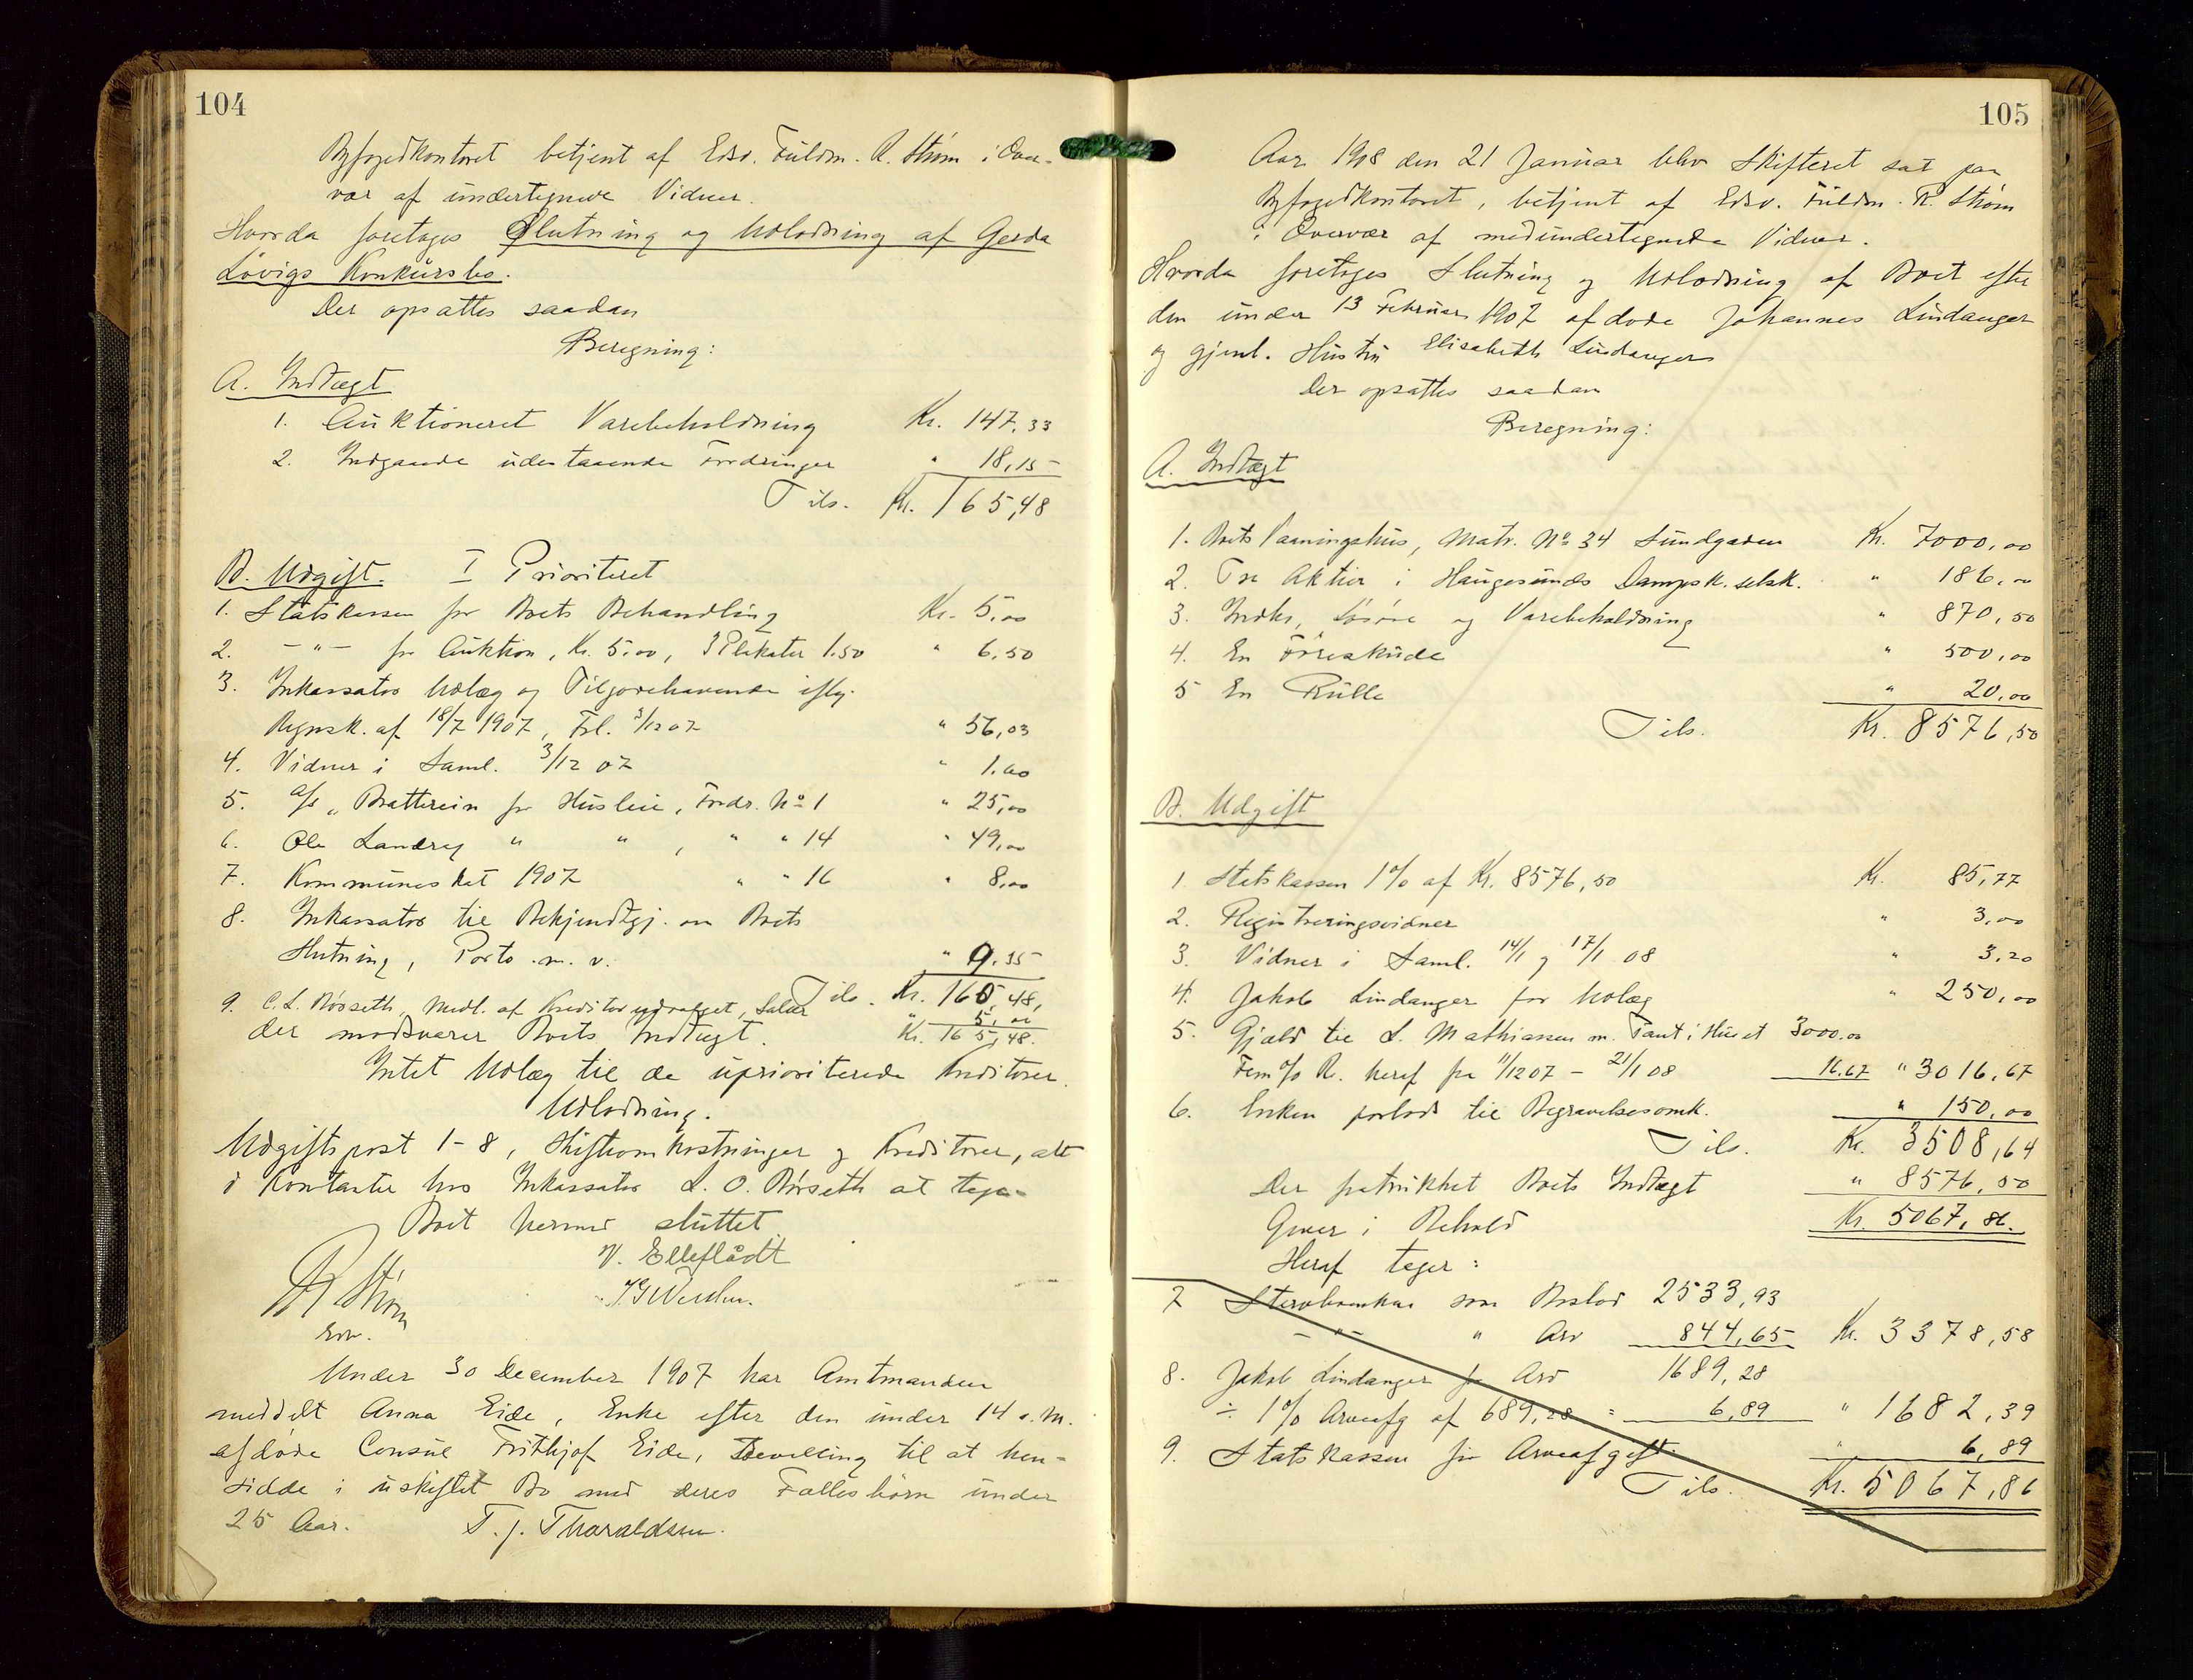 104
Byfogedkontoret betjent af Edsv. Fuldm. R. Strøm i Over-
vær af undertegnede Vidner.
Hvorda foretoges Slutning og Udlodning af Gerda
Løvigs Konkursbo.
Der opsattes saadan
Beregning:
A. Indtægt
1. Auktioneret Varebeholdning Kr. 147,33
2. Indgaaede udestaaende Fordringer " 18,15
Tils. Kr. 165,48
B. Udgift. I Prioriteret
1. Statskassen for Boets Behandling Kr. 5,00
2. - " - for Auktion, Kr. 5,00, 3 Plakater 1.50 " 6,50
3. Inkassators Udlæg og Tilgodehavende iflg.
Regnsk. af 18/7 1907, Frl. 3/12 07 " 56,03
4. Vidner i Saml. 3/12 07 " 1.60
5. A/S "Bratterein for Husleie, Fordr. No 1 " 25,00
6. Ole Landrey " " , " " 14 " 49,00
7. Kommuneskat 1907 " " 16 " 8,00
8. Inkassator til Bekjendtgj. om Boets
Slutning, Porto m. v. " 9.35
Tils. Kr. 160,48,
9. C. L. Børseth, Medl. af Kreditorudvalget, Salær " 5,00
der modsvarer Boets Indtægt. Kr. 165,48.
Intet Udlæg til de uprioriterede Kreditorer.
Udlodning.
Udgiftspost 1-8, Skifteomkostninger og Kreditorer, alt
i Kontanter hos Inkassator L. O. Børseth at tage.
Boet hermed sluttet
R Strøm
Edsv.
V. Elleflådt
Under 30 December 1907 har Amtmanden
meddelt Anna Eide, Enke efter den under 14 s. M.
afdøde Consul Frithjof Eide, Bevilling til at hen-
sidde i uskiftet Bo med deres Fællesbørn under
25 Aar. T. J. Thoraldsen.
105
Aar 1908 den 21 Januar blev Skifteret sat paa
Byfogedkontoret, betjent af Edsv. Fuldm. R. Strøm
i Overvær af medundertegnede Vidner.
Hvorda foretoges Slutning og Udlodning af Boet efter
den under 13 Februar 1907 afdøde Johannes Lindanger
og gjenl. Hustru Elisabeth Lindanger
Der opsattes saadan
Beregning:
A. Indtægt
1. Boets Vaaningshus, Matr. No 34 Sundgaden Kr. 7000,00
2. Tre Aktier i Haugesunds Dampsk. selsk. " 186,00
3. Indbo, Løsøre og Varebeholdning " 870,50
4. En Føreskude " 500,00
5 En Rulle " 20,00
Tils. Kr. 8576,50
B. Udgift
1. Statskassen 1% af Kr. 8576,50 Kr. 85,77
2. Registreringsvidner " 3,00
3. Vidner i Saml. 14/1 og 17/1 08 " 3,20
4. Jakob Lindanger for Udlæg " 250,00
5. Gjæld til L. Mathiassen m. Pant i Huset 3000.00
Fem % R. heraf fra 11/12 07 - 21/1 08 16.67 " 3016,67
6. Enken forlods til Begravelsesomk. " 150,00
Tils. Kr. 3508,64
Der fratrukket Boets Indtægt " 8576,50
Giver i Behold Kr. 5067,86.
Heraf tager:
7 Stervboenken som Boslod 2533,93
- " - " Arv 844,65 Kr. 3378,58
8. Jakob Lindanger for Arv 1689,28
÷ 1% Arveafg af 689,28 = 6,89 " 1682,39
9. Statskassen for Arveafgift " 6,89
Tils. Kr. 5067,86